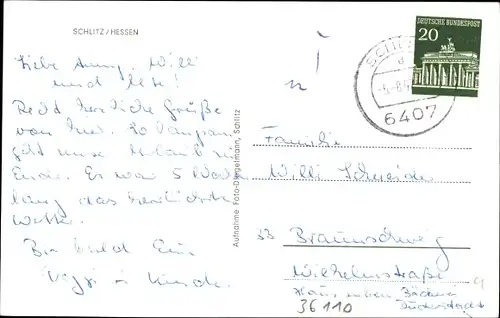 SCHLITZ/HESSEN
Liebe Anny, Willi
und Ilse!
Recht herzliche Grüße
von hier. So langsam
geht unser Urlaub zu
Ende. Es war 5 Wochen
lang das herrlichste
Wetter.
Bis bald Eure
Aufnahme Foto-Diegelmann, Schlitz
DEUTSCHE BUNDESPOST
20
6407
Familie
Willi Schneider
33 Braunschweig
Wilhelmstraße 9
Haus neben Bäckerei
36110